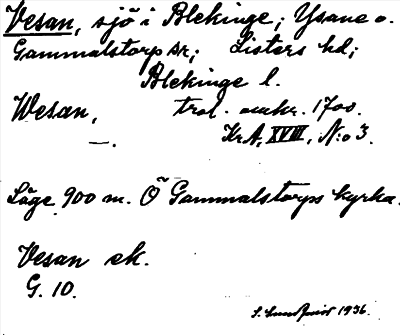 Vesan, sjö i Blekinge; Ysane o.
Gammalstorp sr; Listers hd;
Blekinge l.
Wesan, trol. omkr. 1700.
—. KrA, XVIII, N:o 3.
Läge 900 m. Ö Gammalstorps kyrka.
Vesan ek.
G. 10.
1936.